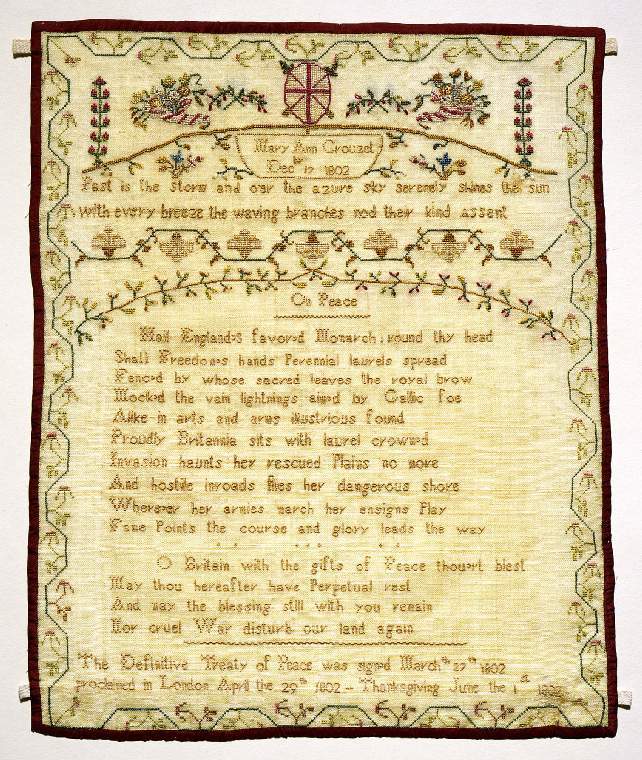 Mary Ann Crouzet
Dec 17 1802
Past is the storm and oar the azure sky serenely shines the sun
with every breeze the waving branches nod their kind assent
On Peace
Hail England,s favord Monarch, round thy head
Shall Freedom,s hands Perennial laurels spread
Fenc,d by whose sacred leaves the royal brow
Mock,d the vain lightnings aim,d by Gallic foe
Alike in arts and arms illustrious found
Proudly Britannia sits with laurel crown,d
Invasion haunts her rescued Plains no more
And hostile inroads flies her dangerous shore
Wherever her armies march her ensigns Play
Fame Points the course and glory leads the way
O Britain with the gifts of Peace thou,rt blest
May thou hereafter have Perpetual rest
And may the blessing still with you remain
Nor cruel War disturb our land again
The Definitive Treaty of Peace was signd March th 27th 1802
proclaimed in London April the 29th 1802 – Thanksgiving June the 1st 1802